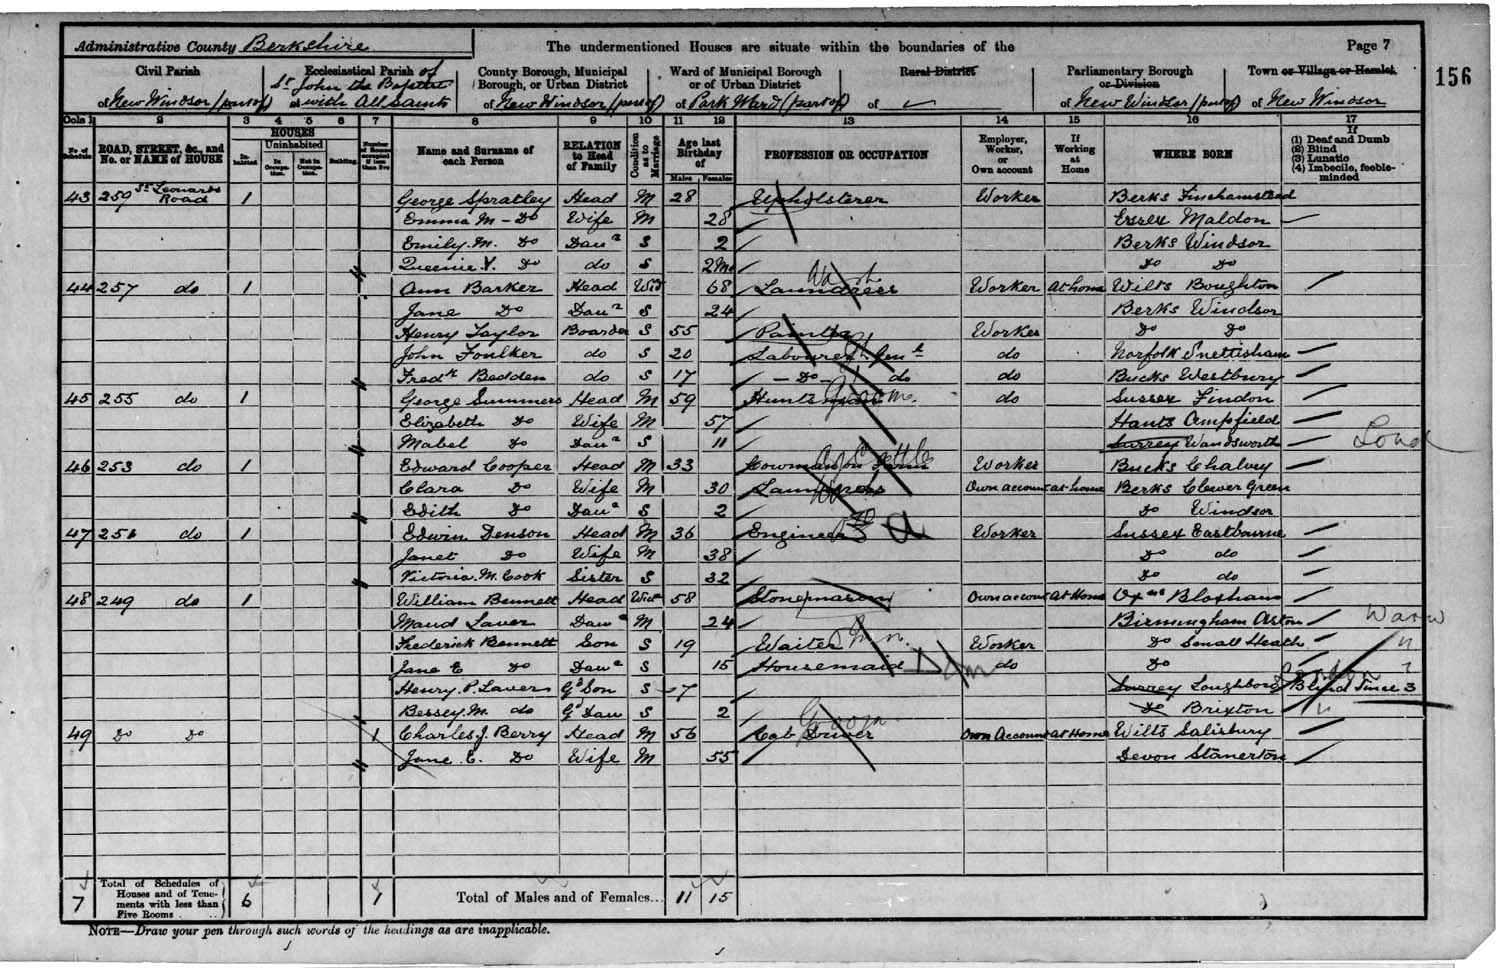 Administrative County Berkshire The undermentioned Houses are situate within the boundaries of the Page 7
156
Civil Parish Ecclesiastical Parish of County Borough, Municipal Borough, or Urban District Ward of Municipal Borough or of Urban District Rural District Parliamentary Borough or Division Town or Village or Hamlet
of New Windsor (part of) St. John the Baptist with All Saints of New Windsor (part of) of Park Ward (part of) of of New Windsor (part of) of New Windsor
Cols 1 2 3 4 5 6 7 8 9 10 11 12 13 14 15 16 17
No. of Schedule ROAD, STREET, &c., and No. or NAME of HOUSE HOUSES Inhabited Uninhabited In Occupation. Not in Occupation. Building. Number of Rooms occupied if less than five Name and Surname of each Person RELATION to Head of Family Condition as to Marriage Age last Birthday of Males Females PROFESSION OR OCCUPATION Employer, Worker, or Own account If Working at Home WHERE BORN If (1) Deaf and Dumb (2) Blind (3) Lunatic (4) Imbecile, feeble-minded
43 259 St Leonards Road 1 George Spratley Head M 28 Upholsterer Worker Berks Finchamstead
Emma M - Do Wife M 28 Essex Maldon
Emily. M. Do Daur S 2 Berks Windsor
Queenie. V. Do do S 2 Mo Do Do
44 257 do 1 Ann Barker Head Wid 68 Laundress Wash Worker At home Wilts Boughton
Jane Do Daur S 24 Berks Windsor
Henry Taylor Boarder S 55 Painter Worker Do Do
John Foulker do S 20 Labourer Genl do Norfolk Snettisham
Fredk Bedden do S 17 - Do - do do Bucks Westbury
45 255 do 1 George Summers Head M 59 Huntsman Groom. do Sussex Findon
Elizabeth Do Wife M 57 Hants Ampfield
Mabel Do Daur S 11 Surrey Wandsworth Lond
46 253 do 1 Edward Cooper Head M 33 Cowman on Farm Cattle Worker Bucks Chalvey
Clara Do Wife M 30 Laundress Own account at home Berks Clewer Green
Edith Do Daur S 2 Do Windsor
47 251 do 1 Edwin Denson Head M 36 Engineer Worker Sussex Eastbourne
Janet Do Wife M 38 Do do
Victoria. M. Cook Sister S 32 Do do
48 249 do 1 William Bennett Head Widr 58 Stonemason Own account At Home Oxon Bloxham
Maud Laver Daur M 24 Birmingham Aston Warw
Frederick Bennett Son S 19 Waiter Worker Do Small Heath "
Jane E Do Daur S 15 Housemaid Dom do Do
Henry. P. Laver Gd Son S 7 Surrey Loughboro London Blind Since 3
Bessey. M. do Gd Dau S 2 Do Brixton "
49 Do Do 1 Charles J. Berry Head M 56 Cab Driver Groom. Own Account At Home Wilts Salisbury
Jane. E. Do Wife M 55 Devon Stanerton
7 Total of Schedules of Houses and of Tenements with less than Five Rooms 6 1 Total of Males and of Females... 11 15
NOTE—Draw your pen through such words of the headings as are inapplicable.